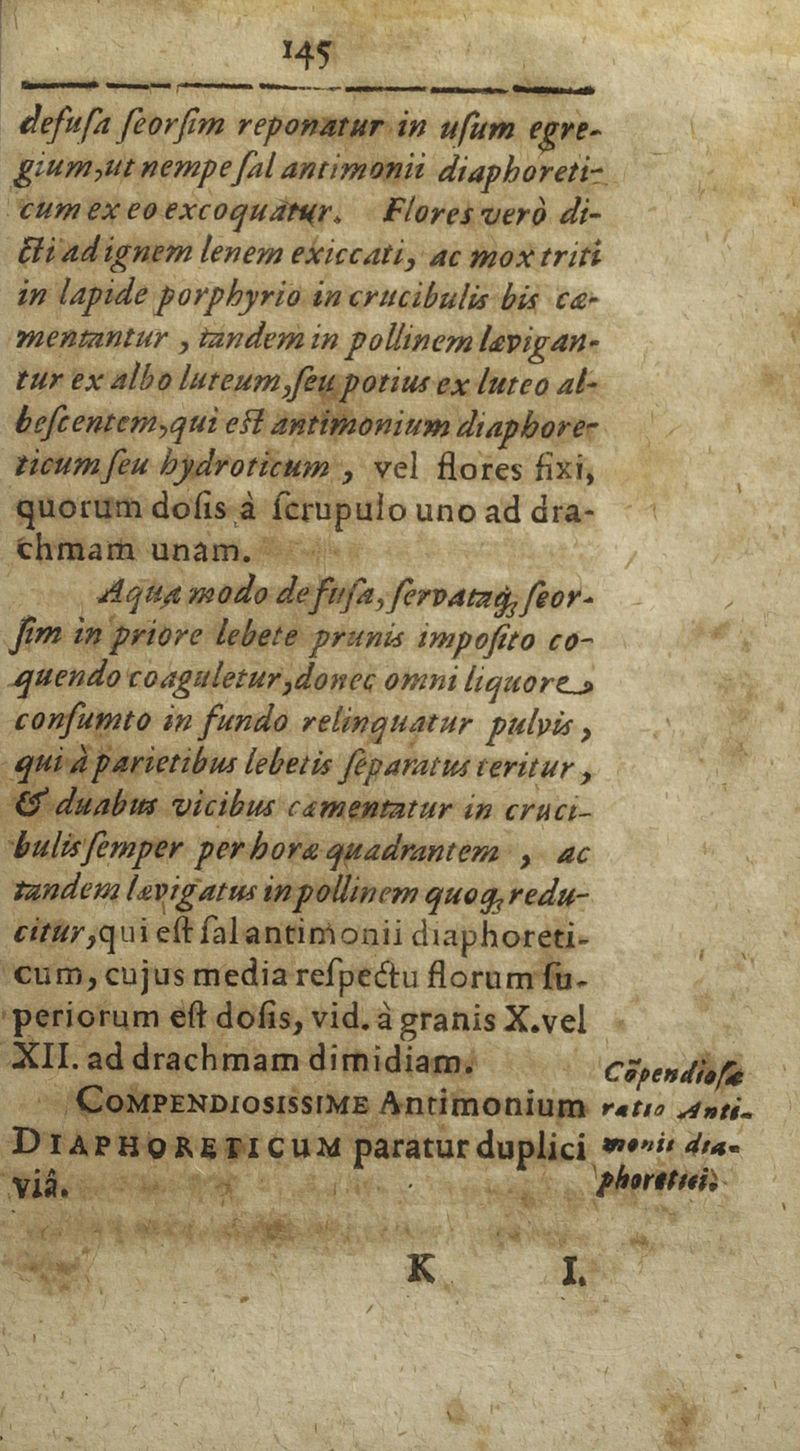 145
defuſa ſeorſim reponatur in uſum egre-
gium, ut nempe ſal antimonii diaphoreti-
cum ex eo excoquatur. Flores verò di-
cti ad ignem lenem exiccati, ac mox triti
in lapide porphyrio in crucibulis bis cæ-
mentantur, tandem in pollinem lævigan-
tur ex albo luteum, ſeu potius ex luteo al-
beſcentem, qui eſt antimonium diaphore-
ticum ſeu hydroticum, vel flores fixi,
quorum doſis à ſcrupulo uno ad dra-
chmam unam.
Aqua modo defuſa, ſervataq; ſeor-
ſim in priore lebete prunis impoſito co-
quendo coaguletur, donec omni liquore
conſumto in fundo relinquatur pulvis,
qui à parietibus lebetis ſeparatus teritur,
& duabus vicibus cæmentatur in cruci-
bulis ſemper per horæ quadrantem, ac
tandem lævigatus in pollinem quoq; redu-
citur, qui eſt ſal antimonii diaphoreti-
cum, cujus media reſpectu florum ſu-
periorum eſt doſis, vid. à granis X. vel
XII. ad drachmam dimidiam.
COMPENDIOSISSIME Antimonium
DIAPHORETICUM paratur duplici
viâ.
Cōpendioſæ
ratio Anti-
monii dia-
phoretici.
K I.